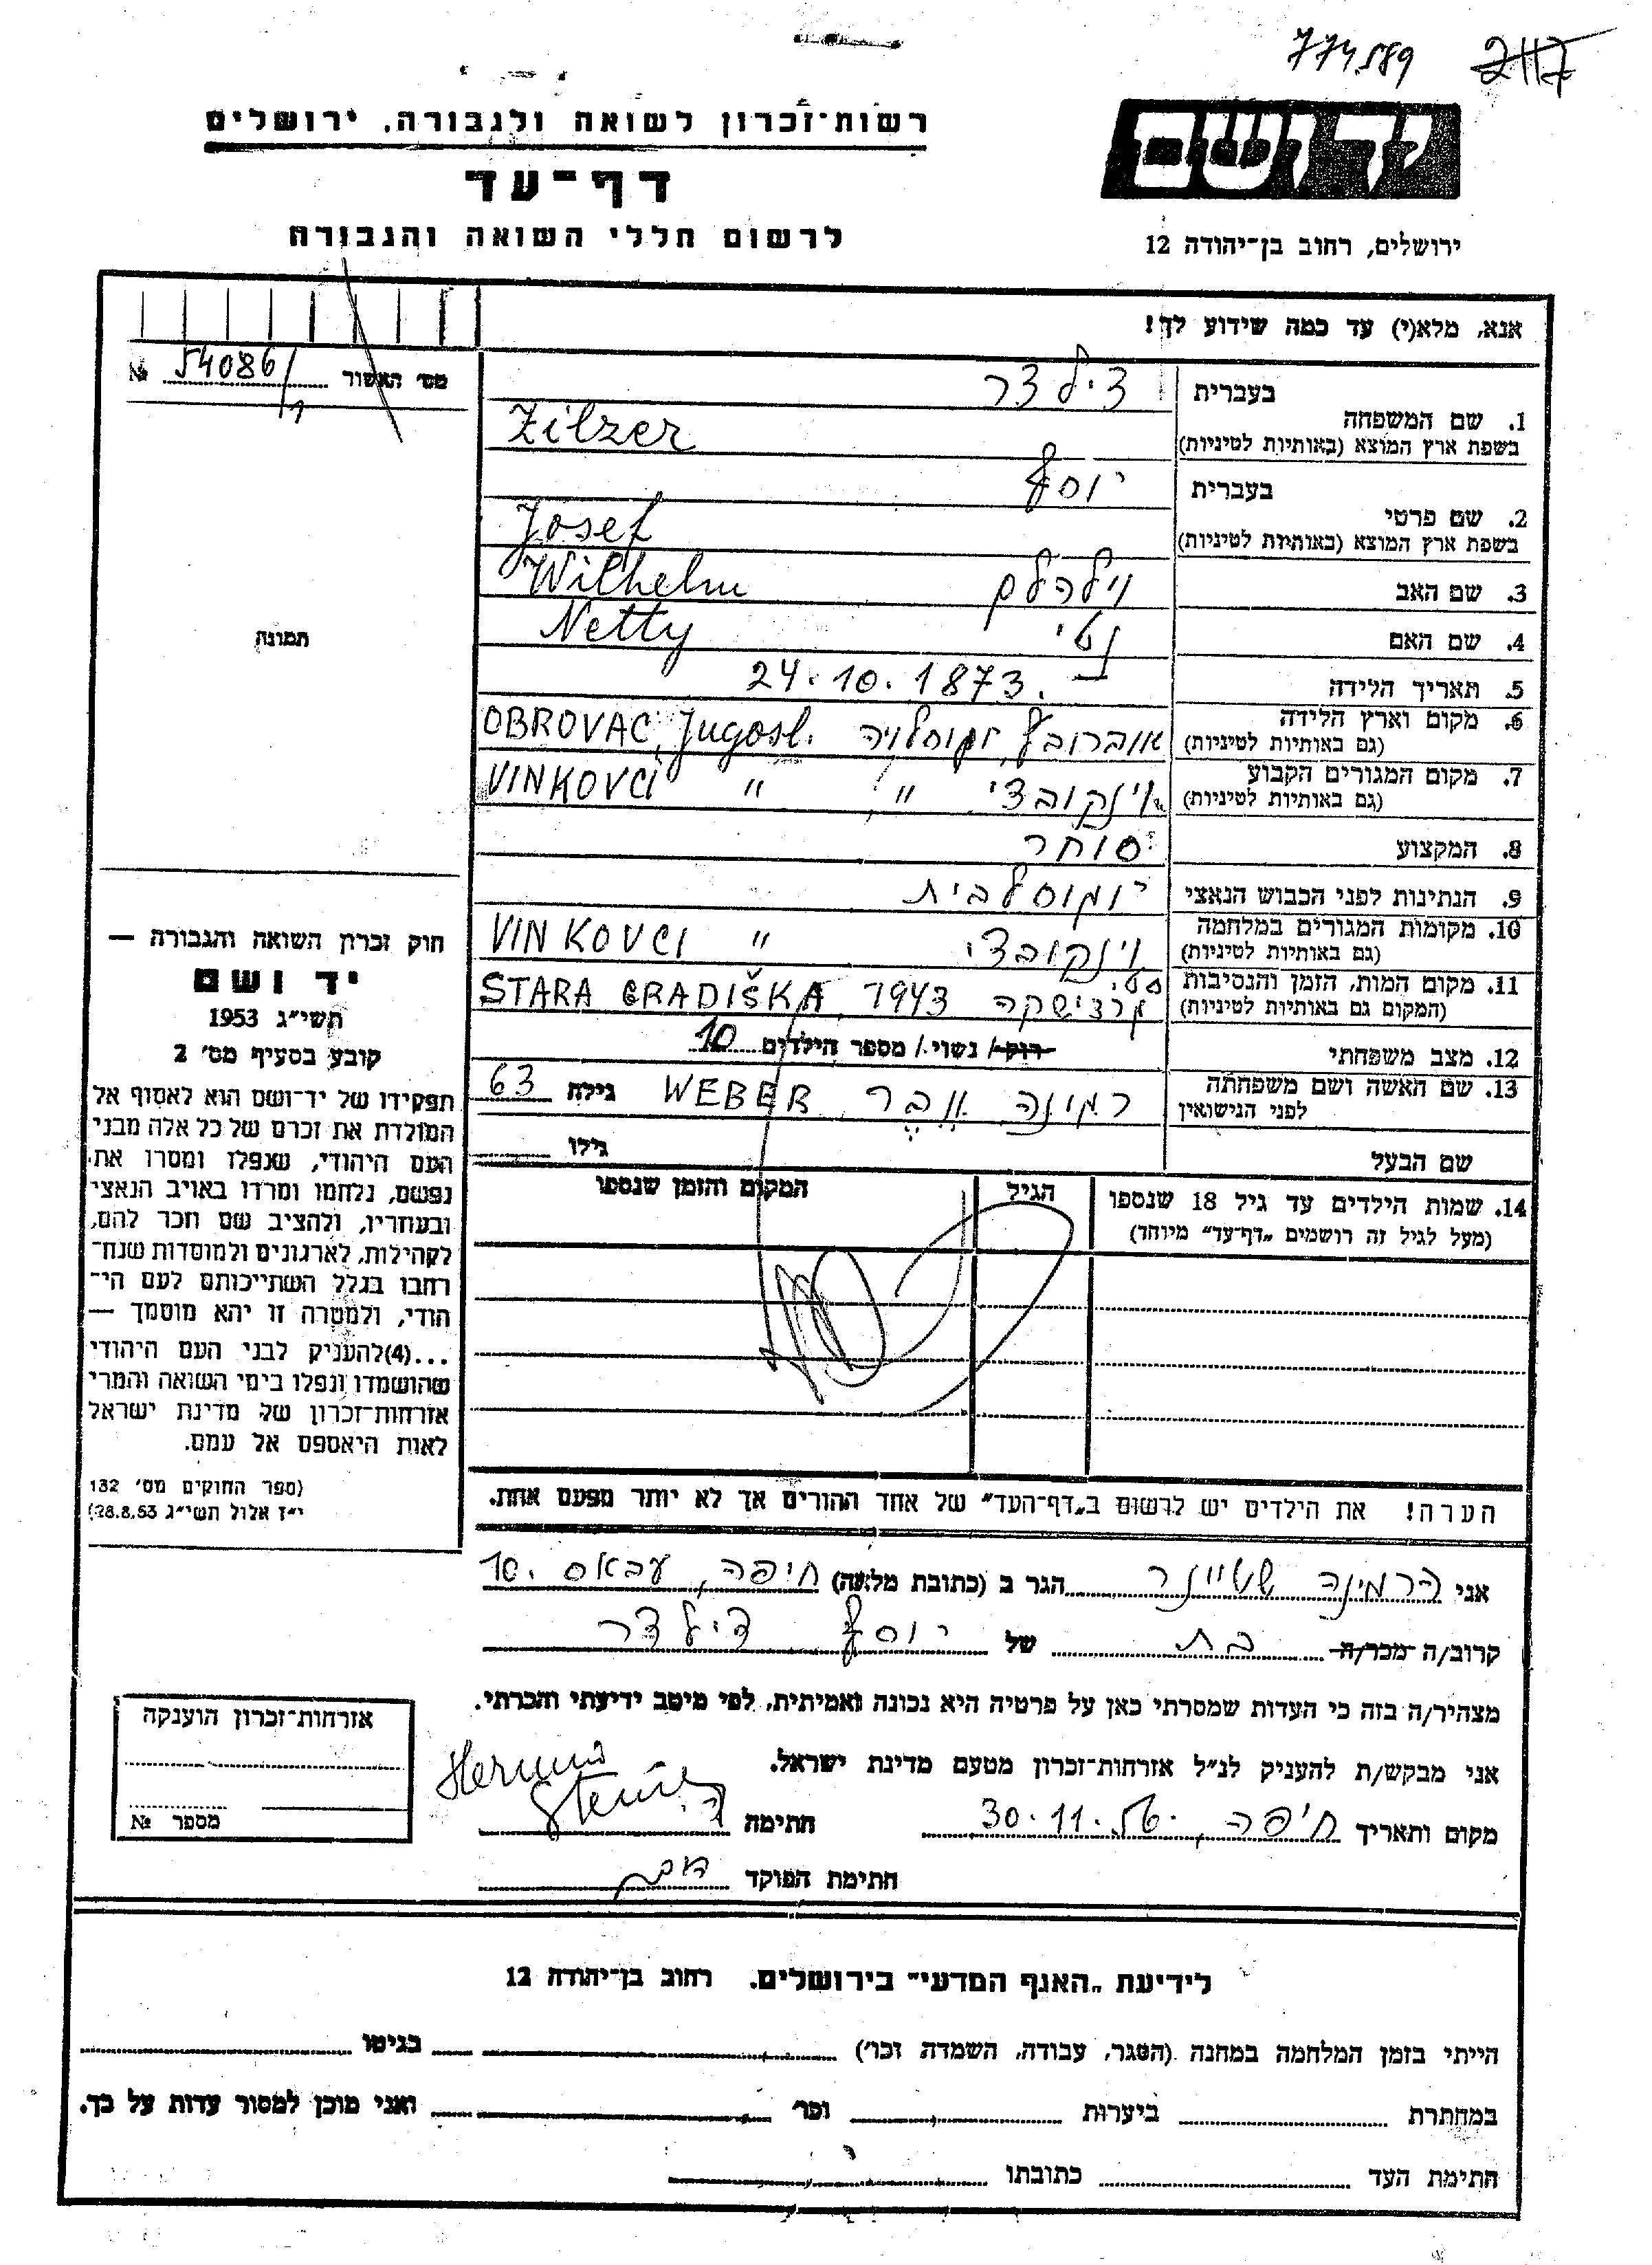 774589 2117
רשות־זכרון לשואה ולגבורה, ירושלים
יד ושם
דף־עד
לרשום חללי השואה והגבורה
ירושלים, רחוב בן־יהודה 12
אנא, מלא(י) עד כמה שידוע לך!
מס׳ האשור 54086/ №
בעברית צילצר
1. שם המשפחה
בשפת ארץ המוצא (באותיות לטיניות) Zilzer
בעברית יוסף
2. שם פרטי
בשפת ארץ המוצא (באותיות לטיניות) Josef
3. שם האב וילהלם Wilhelm
4. שם האם נטי Netty
5. תאריך הלידה 24.10.1873.
6. מקום וארץ הלידה אוברובץ, יוגוסלויה OBROVAC, Jugosl.
(גם באותיות לטיניות)
7. מקום המגורים הקבוע וינקובצי " VINKOVCI " "
(גם באותיות לטיניות)
8. המקצוע סוחר
9. הנתינות לפני הכבוש הנאצי יוגוסלבית
10. מקומות המגורים במלחמה וינקובצי VINKOVCI "
(גם באותיות לטיניות)
11. מקום המות, הזמן והנסיבות גרדישקה STARA GRADIŠKA, 1943
(המקום גם באותיות לטיניות)
12. מצב משפחתי רוק/ נשוי/ מספר הילדים 10
13. שם האשה ושם משפחתה רמינה, וֶבֶּר WEBER גילה 63
לפני הנישואין
שם הבעל גילו
14. שמות הילדים עד גיל 18 שנספו הגיל המקום והזמן שנספו
(מעל לגיל זה רושמים "דף־עד" מיוחד)
הערה! את הילדים יש לרשום ב"דף־העד" של אחד ההורים אך לא יותר מפעם אחת.
תמונה
חוק זכרון השואה והגבורה —
יד ושם
תשי״ג 1953
קובע בסעיף מס׳ 2
תפקידו של יד־ושם הוא לאסוף אל
המולדת את זכרם של כל אלה מבני
העם היהודי, שנפלו ומסרו את
נפשם, נלחמו ומרדו באויב הנאצי
ובעוזריו, ולהציב שם וזכר להם,
לקהילות, לארגונים ולמוסדות שנח־
רבו בגלל השתייכותם לעם הי־
הודי, ולמטרה זו יהא מוסמך —
...(4) להעניק לבני העם היהודי
שהושמדו ונפלו בימי השואה והמרי
אזרחות־זכרון של מדינת ישראל
לאות היאספם אל עמם.
(ספר החוקים מס׳ 132
י״ז אלול תשי״ג 28.8.53)
אני הרמינה שטיינר הגר ב (כתובת מלאה) חיפה, עבאס 10.
קרוב/ה מכר/ה בת של יוסף צילצר
מצהיר/ה בזה כי העדות שמסרתי כאן על פרטיה היא נכונה ואמיתית, לפי מיטב ידיעתי והכרתי.
אני מבקש/ת להעניק לנ״ל אזרחות־זכרון מטעם מדינת ישראל.
מקום ותאריך חיפה, 30.11.56. חתימה
חתימת הפוקד
אזרחות־זכרון הוענקה
מספר №
לידיעת "האגף המדעי" בירושלים. רחוב בן־יהודה 12
הייתי בזמן המלחמה במחנה (הסגר, עבודה, השמדה וכו׳) בגיטו
במחתרת ביערות וכו׳ ואני מוכן למסור עדות על כך.
חתימת העד כתובתו